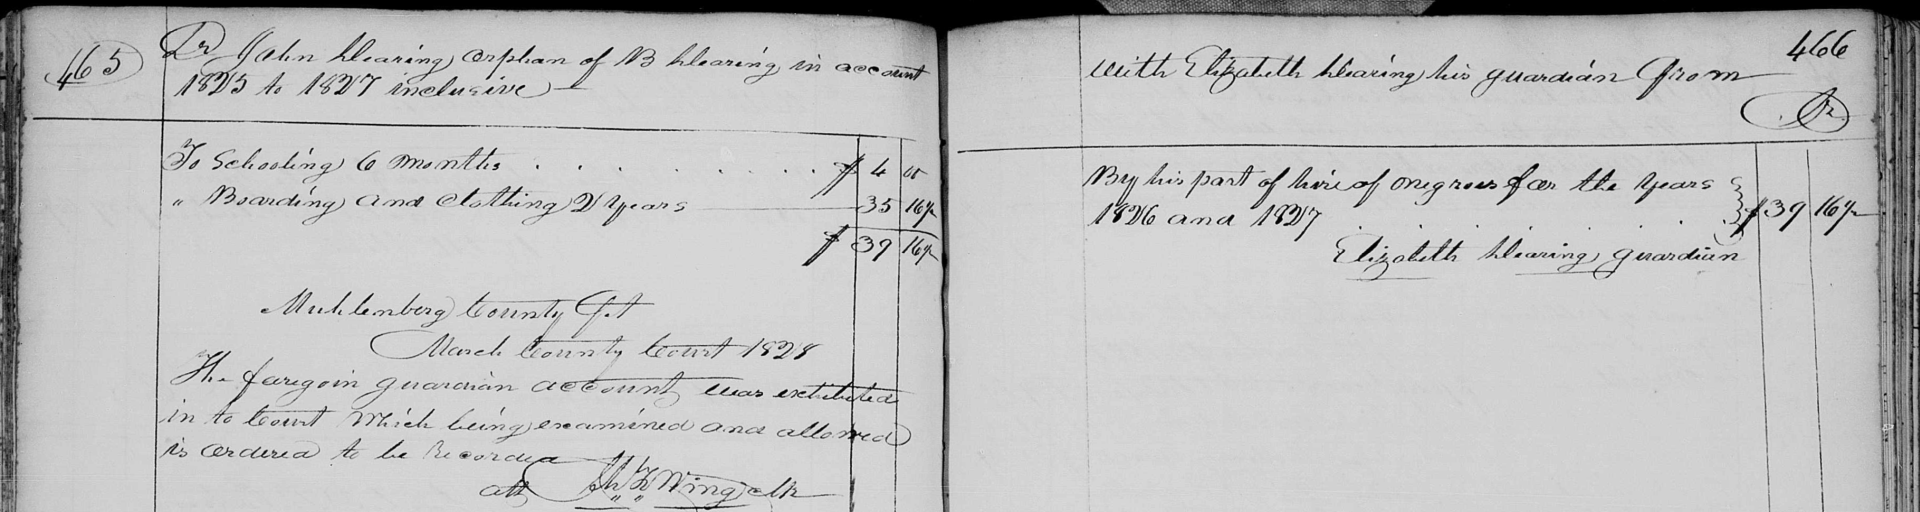 465
Dr John Clearing orphan of B Clearing in account
1825 to 1827 inclusive
To Schooling 6 months . . . . . . . . . $ 4 00
" Boarding and Clothing 2 Years 35 16½
$ 39 16½
Muhlenberg County Sct
March County Court 1828
The foregoin guardian account was exhibited
in to Court Which being examined and allowed
is ordered to be Recorded
att Ch. F. Wing clk
466
with Elizabeth Clearing his guardian from
Cr
By his part of hire of negroes for the Years
1826 and 1827 . . . . . $ 39 16½
Elizabeth Clearing guardian